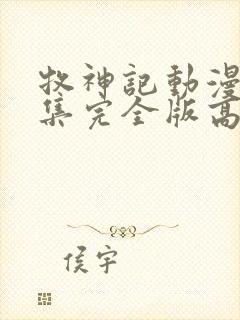 牧神記動漫
集完全版高
侯宇